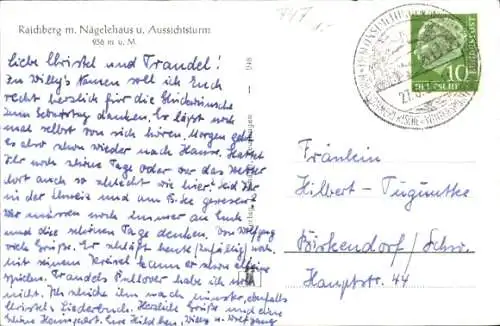 Raichberg m. Nägelehaus u. Aussichtsturm
956 m ü. M
Liebe Christel und Traudel!
Zu Willy's Namen soll ich Euch
recht herzlich für die Glückwünsche
zum Geburtstag danken. Er läßt noch
mal selbst von sich hören. Morgen geht
es aber schon wieder nach Hause. Hattet
Ihr noch schöne Tage oder war das Wetter
dort auch so schlecht wie hier? Seid Ihr
in der Schweiz und am B.See gewesen?
Wir müssen noch immer an Euch
und die schönen Tage denken. Von Wolfgang
viele Grüße. Er schläft heute zufällig
mit seinem Kreisel kann er schon alleine
spielen. Traudels Pullover habe ich noch
nicht. Ich schicke ihn nach Münster, ebenfalls
Christels Liederbuch. Herzliche Grüße und eine
schöne Eure Hildchen, Willy u. Wolfgang
747
10
DEUTSCHE
BUNDESPOST
27.
Fräulein
Hilbert - Tuguntke
Birkendorf/Schw.
Hauptstr. 44